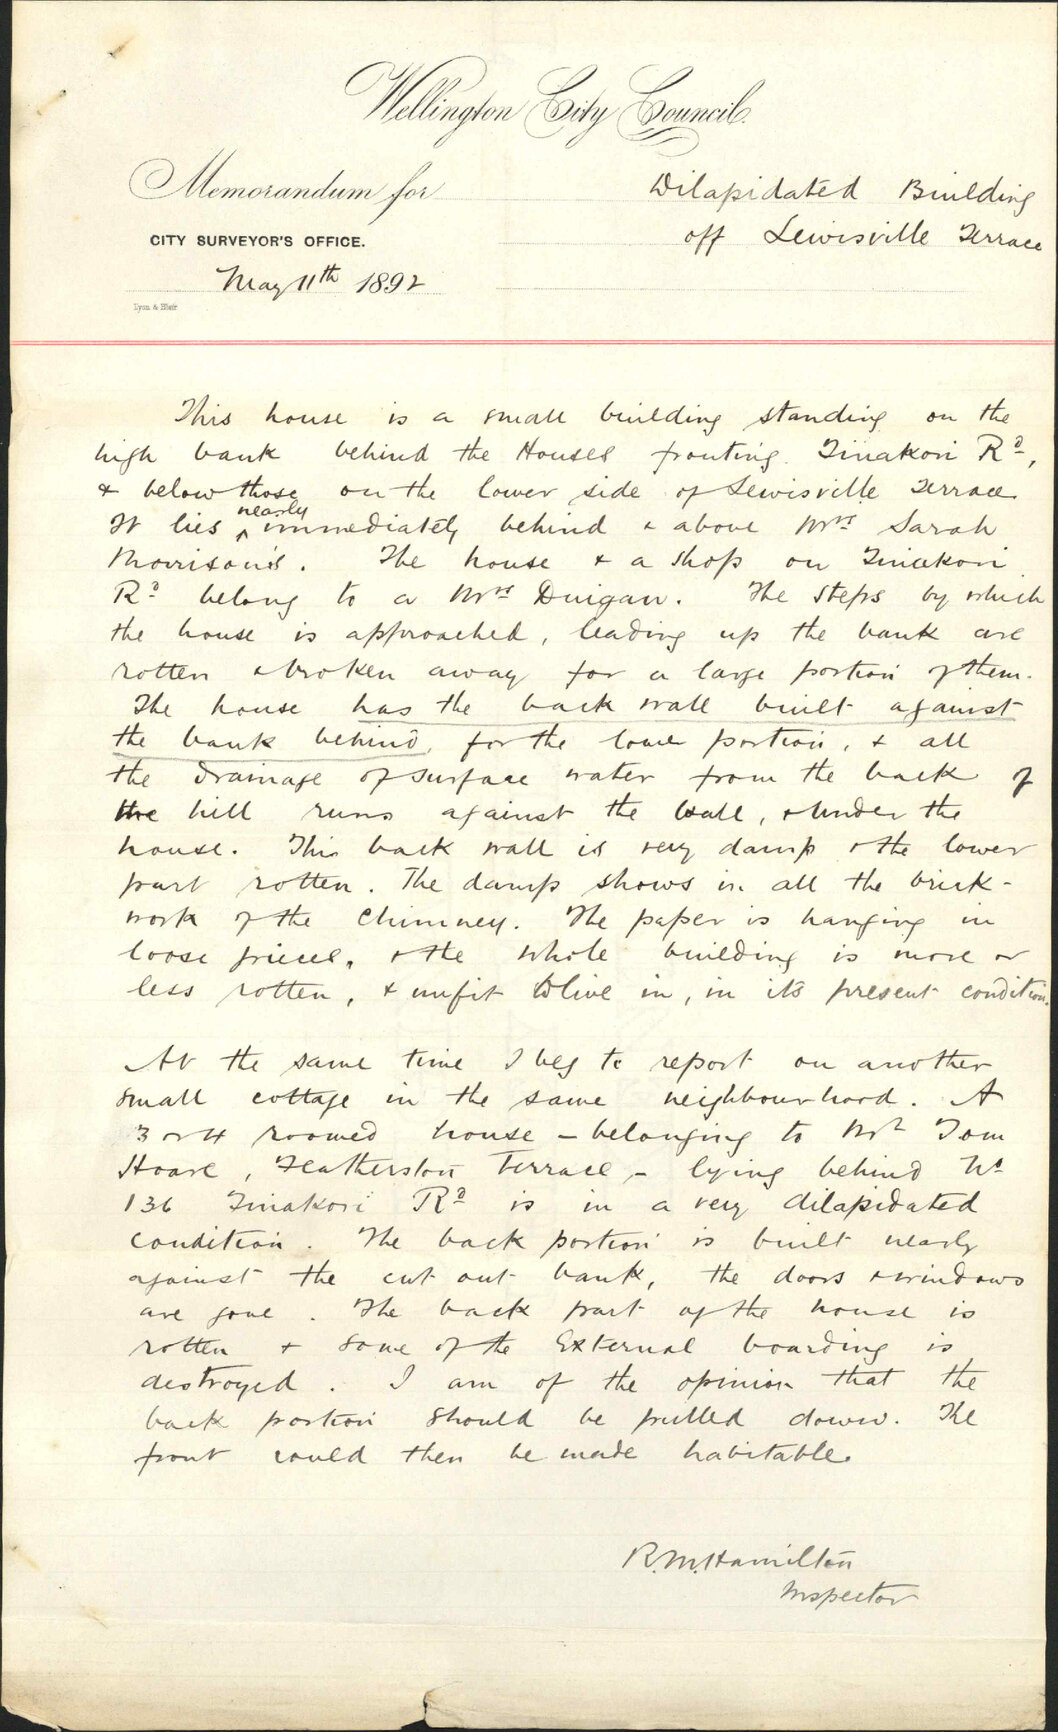 Wellington City Council.
Memorandum for
Dilapidated Building
CITY SURVEYOR'S OFFICE.
off Lewisville Terrace
May 11th 1892
Lyon & Blair
This house is a small building standing on the
high bank behind the Houses fronting Tinakori Rd,
& below those on the lower side of Lewisville Terrace
It lies nearly immediately behind & above Mrs Sarah
Morrison's. The house & a shop on Tinakori
Rd belong to a Mrs Duigan. The steps by which
the house is approached, leading up the bank are
rotten & broken away for a large portion of them.
The house has the back wall built against
the bank behind, for the lower portion, & all
the drainage of surface water from the back of
the hill runs against the wall, & under the
house. This back wall is very damp & the lower
part rotten. The damp shows in all the brick-
work of the chimney. The paper is hanging in
loose pieces, & the whole building is more or
less rotten, & unfit to live in, in its present condition.
At the same time I beg to report on another
small cottage in the same neighbourhood. A
3 or 4 roomed house - belonging to Mr Tom
Hoare, Featherston Terrace - lying behind No
136 Tinakori Rd is in a very dilapidated
condition. The back portion is built nearly
against the cut out bank, the doors & windows
are gone. The back part of the house is
rotten & some of the External boarding is
destroyed. I am of the opinion that the
back portion should be pulled down. The
front could then be made habitable.
R.M. Hamilton
Inspector